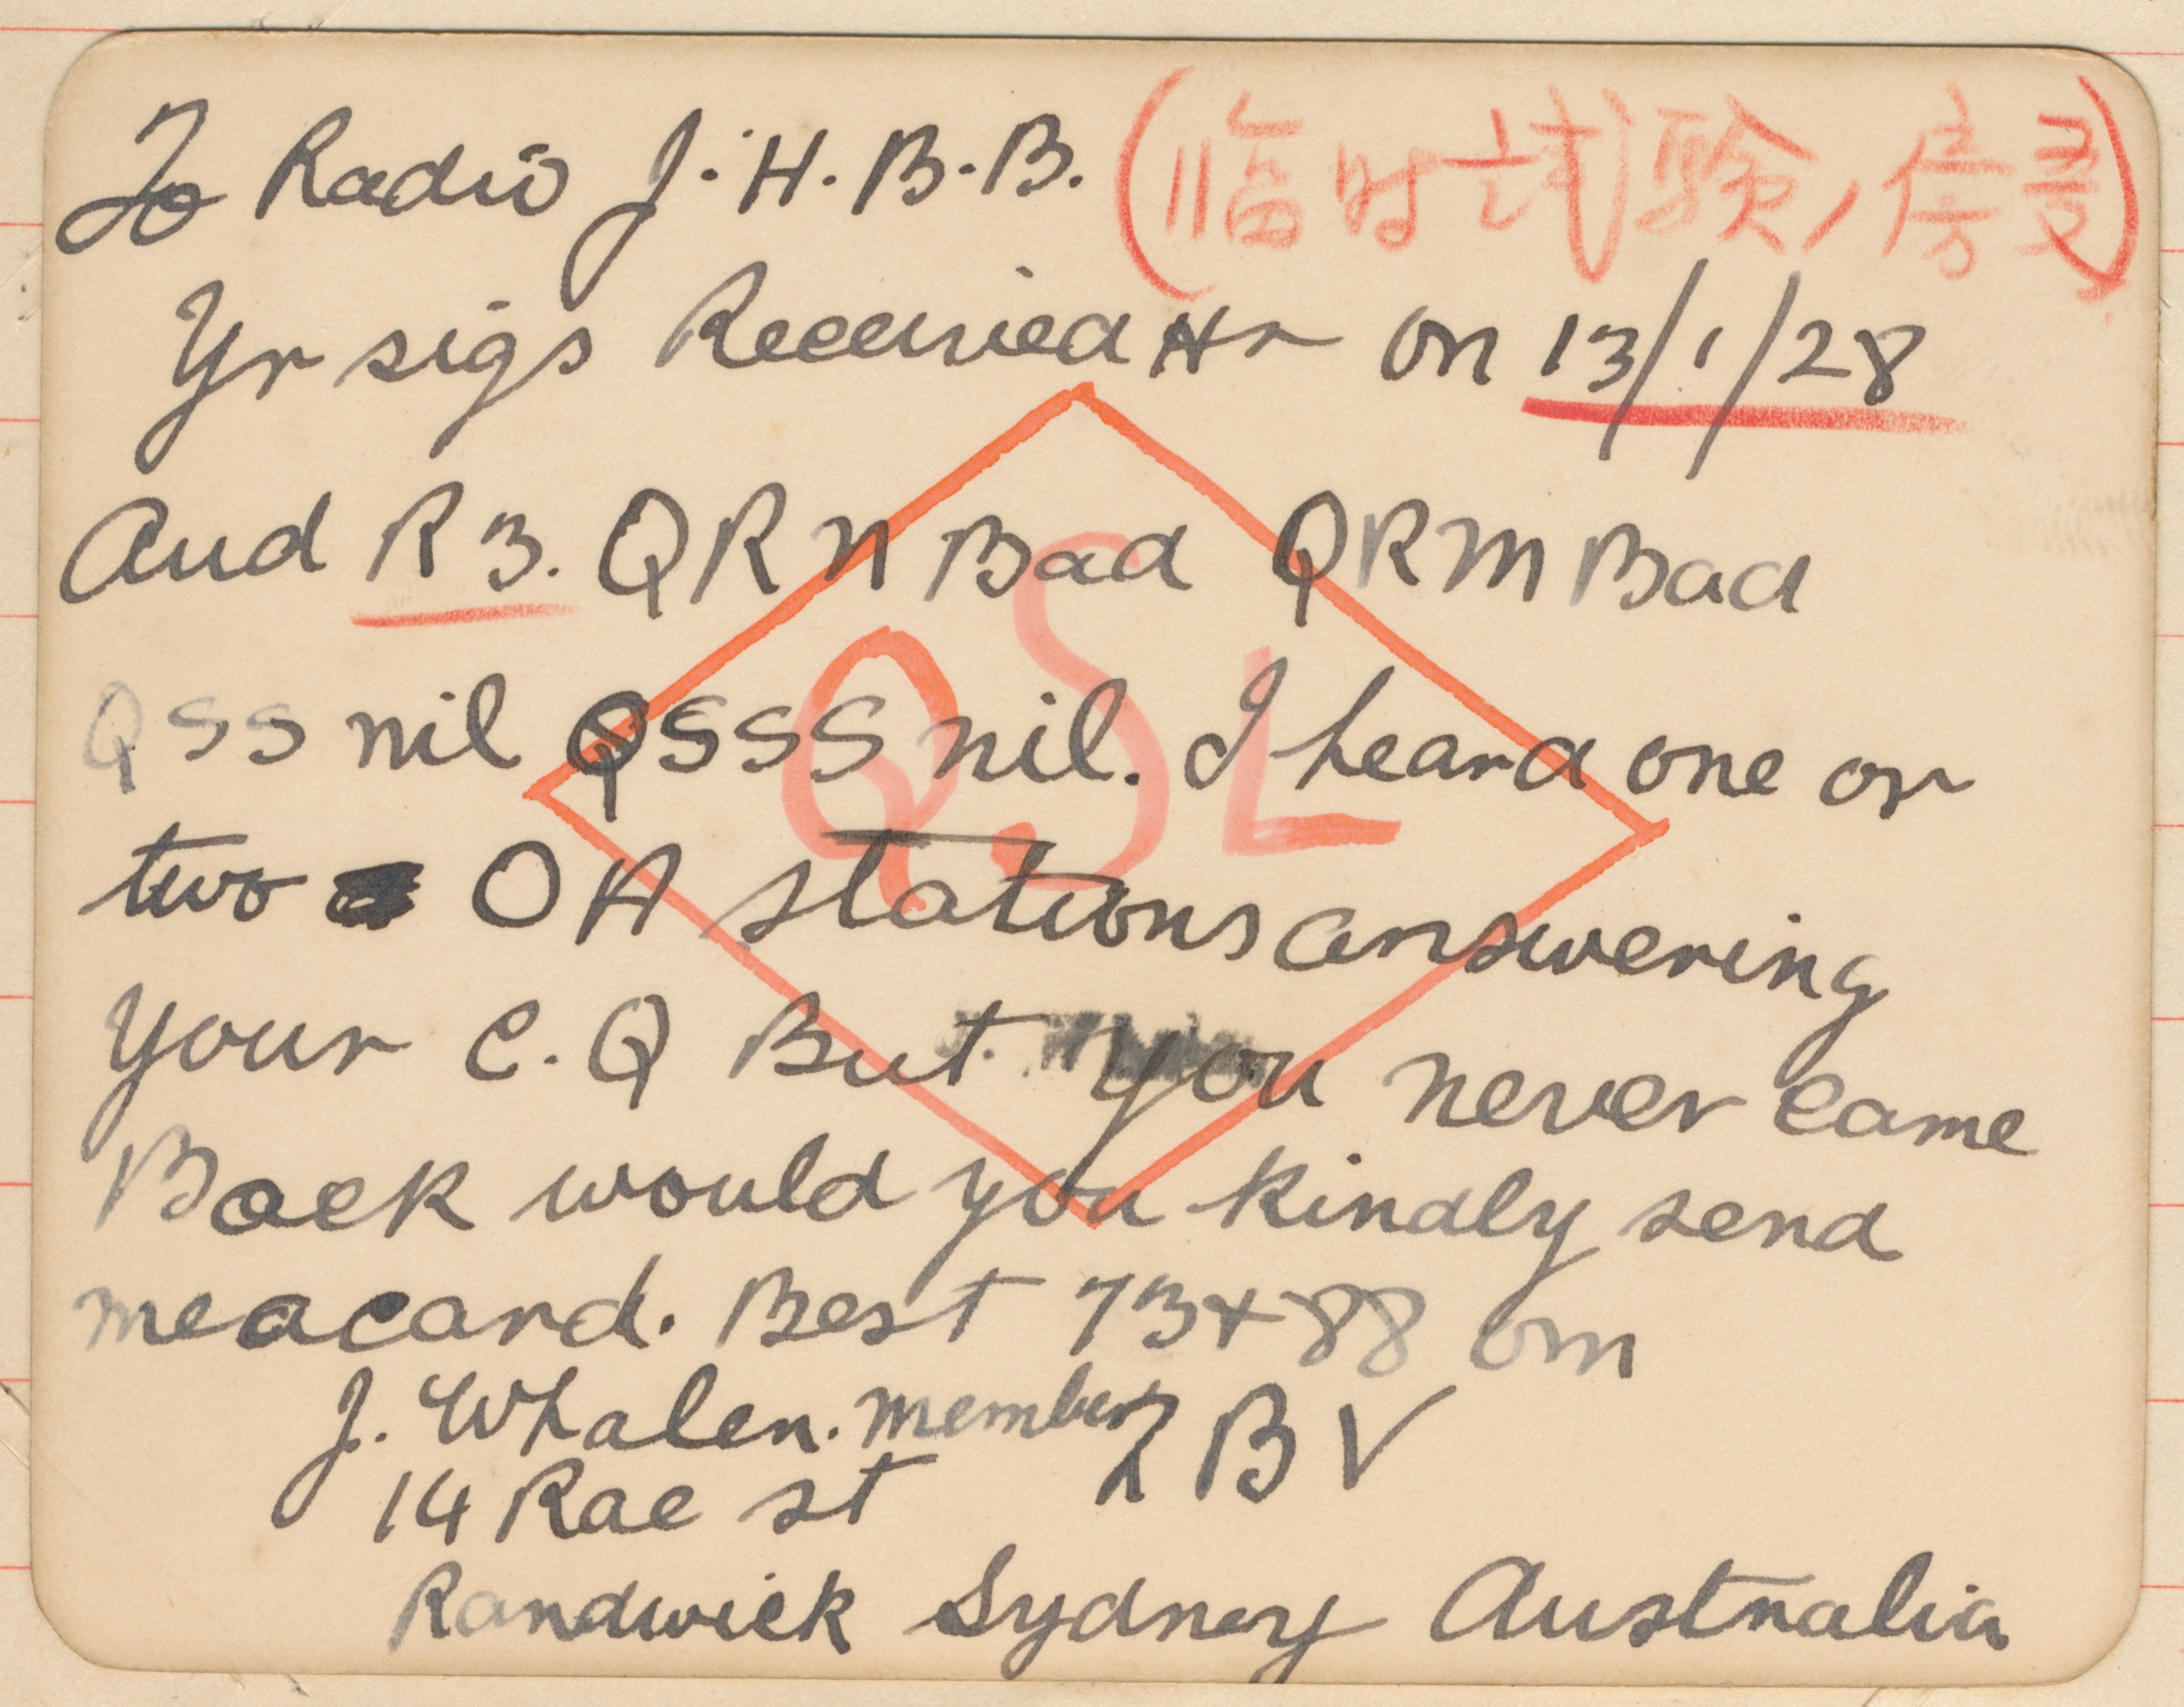 To Radio J.H.B.B. (临时試験ノ傍受)
Yr sigs Received Hr on 13/1/28
Aud R3. QRN Bad QRM Bad
QSS nil QSSS nil. I heard one or
two OA stations answering
your C.Q But you never came
Back would you kindly send
me a card. Best 73 + 88 om
J. Whalen. member 2BV
14 Rae st
Randwick Sydney Australia
QSL